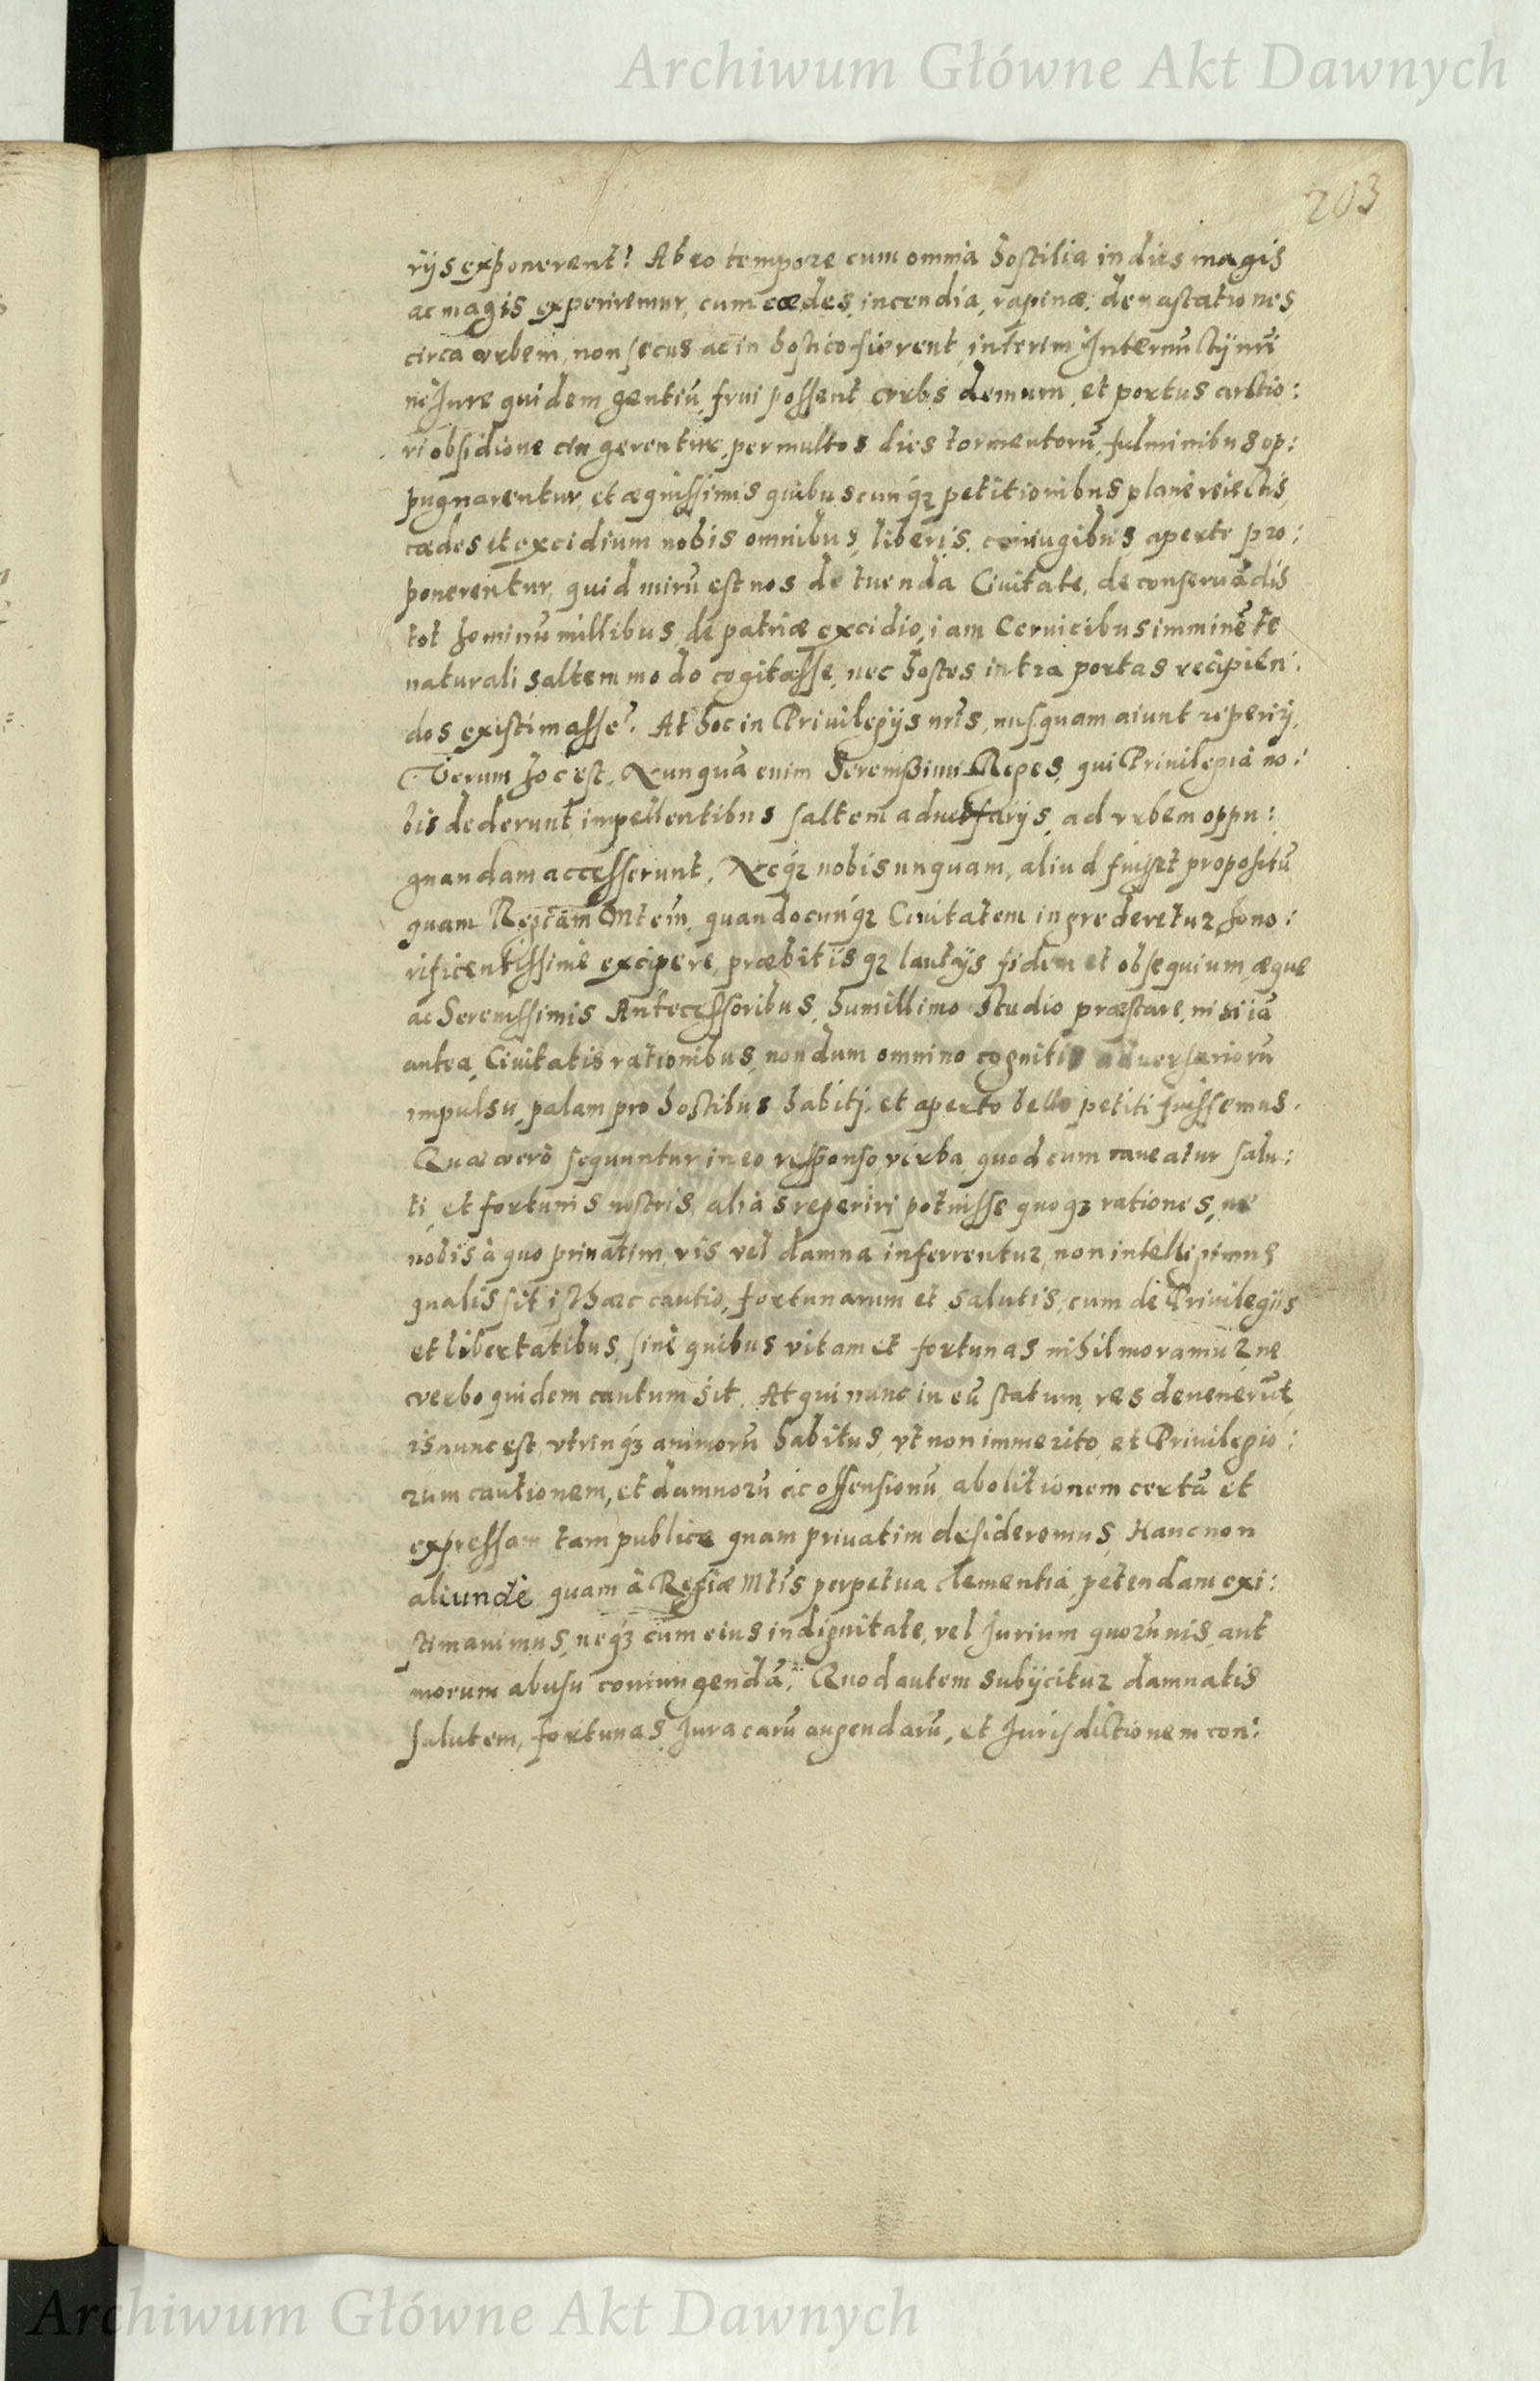 Archiwum Główne Akt Dawnych
203
rijs exponerent? Ab eo tempore cum omnia hostilia in dies magis
ac magis experiremur, cum cædes, incendia, rapinæ, deuastationes
circa vrbem, non secus ac in hostico fierent, interim Internuntij nri
nè Jure quidem gentiũ, frui possent, vrbs demum, et portus arctio:
ri obsidione cingerentur, per multos dies tormentorũ, fulminibus op:
pugnarentur, et æquissimis quibuscunq́ʒ petitionibus planè reiectis,
cædes et excidium nobis omnibus, liberis, coniugibus, aperte pro:
ponerentur, quid mirũ est nos de tuenda Ciuitate, de conseruãdis
tot hominũ millibus, de patriæ excidio, iam Ceruicibus imminẽte
naturali saltem modo cogitasse, nec hostes intra portas recipien:
dos existimasse? At hoc in Priuilegijs nris, nusquam aiunt reperirj,
Verum hoc est, Nunquã enim Sereniss̃imi Reges, qui Priuilegia no:
bis dederunt, impellentibus saltem aduersarijs, ad vrbem oppu:
gnandam accesserunt, Neq́ʒ nobis unquam, aliud fuisset propositũ
quam Regiam Mtem, quandocunq́ʒ Ciuitatem ingrederetur, hono:
rificentissimè excipere, præbitisqʒ lautijs fidem et obsequium, æque
ac Serenissimis Antecessoribus, humillimo studio præstare, nisi iã
antea, Ciuitatis rationibus, nondum omnino cognitis aduersariorũ
impulsu, palam pro hostibus habitj, et aperto bello petiti fuissemus.
Quæ verò sequuntur in eo responso, verba, quod cum caueatur salu:
ti, et fortunis nostris, aliàs reperiri potuisse quoqʒ rationes, ne
nobis à quo priuatim, vis vel damna inferrentur, non intelligimus
qualis sit isthæc cautio, fortunarum et salutis, cum de Priuilegijs
et libertatibus, sinè quibus vitam et fortunas nihil moramur, ne
verbo quidem cautum sit, At qui nunc in eũ statum, res deuenerũt,
is nunc est, vtrinq́ʒ animorũ habitus, vt non immerito, et Priuilegio:
rum cautionem, et damnorũ ac offensionũ, abolitionem certã et
expressam tam publice quam priuatim desideremus, Hanc non
aliunde quam à Regiæ Mtis perpetua clementia, petendam exi:
stimauimus, neq́ʒ cum eius indignitate, vel Jurium quorũuis, aut
morum abusu coniungendã. Quod autem subijcitur damnatis
salutem, fortunas Jura earũ augendarũ, et Jurisdictionem con:
Archiwum Główne Akt Dawnych